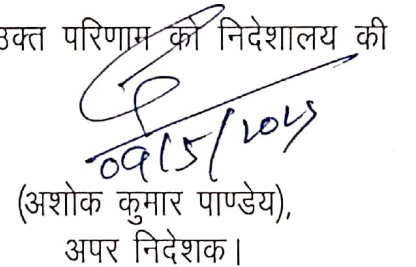 उक्त परिणाम को निदेशालय की
09/5/2025
(अशोक कुमार पाण्डेय),
अपर निदेशक।